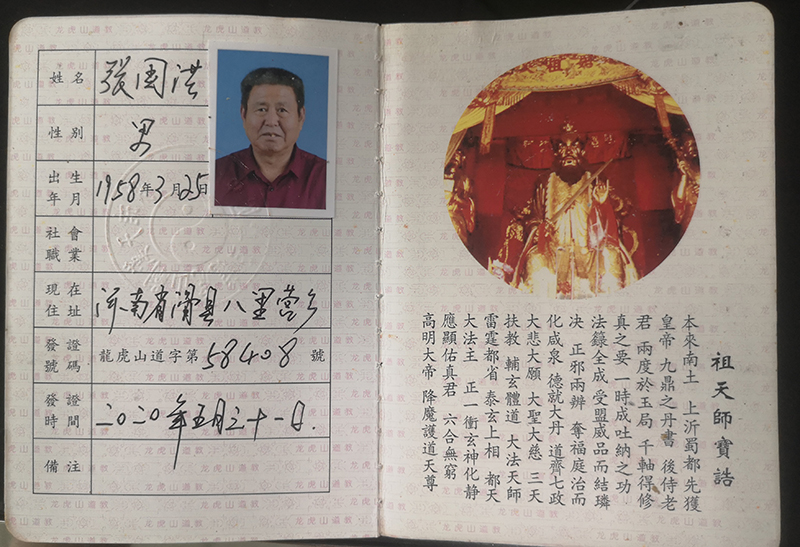 姓名 張国洪
性別 男
出生年月 1958年3月25日
社會職業
現在住址 河南省滑县八里营乡
發證號碼 龍虎山道字第58408號
發證時間 二〇二〇年五月三十一日.
備注
祖天師寶誥
本來南土 上沂蜀都先獲
皇帝 九鼎之丹書 後侍老
君 兩度於玉局 千軸得修
真之要 一時成吐納之功
法籙全成 受盟威品而結璘
決 正邪兩辨 奪福庭治而
化咸泉 德就大丹 道齊七政
大悲大願 大聖大慈 三天
扶教 輔玄體道 大法天師
雷霆都省 泰玄上相 都天
大法主 正一衝玄神化静
應顯佑真君 六合無窮
高明大帝 降魔護道天尊
龙虎山道教